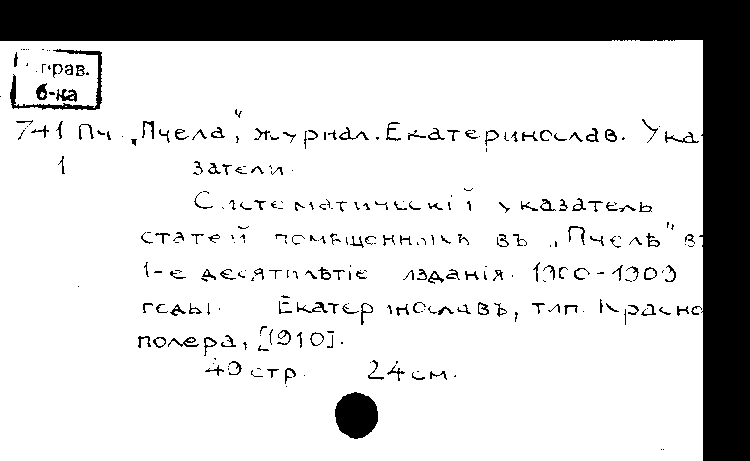 б-ка
741 Пч „Пчела“, журнал. Екатеринослав. Ука
1 затели.
Систематическiй указатель
статей помѣщенныхъ въ „Пчелѣ“ въ
1-е десятилѣтiе изданiя. 1900-1909
годы. Екатеринославъ, тип. Красно
полера, [1910].
40 стр. 24 см.